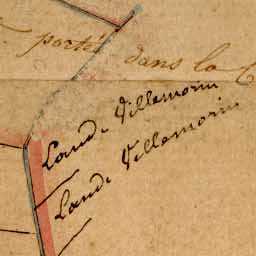 portée dans la C
Land. Villemorin
Land. Villemorin